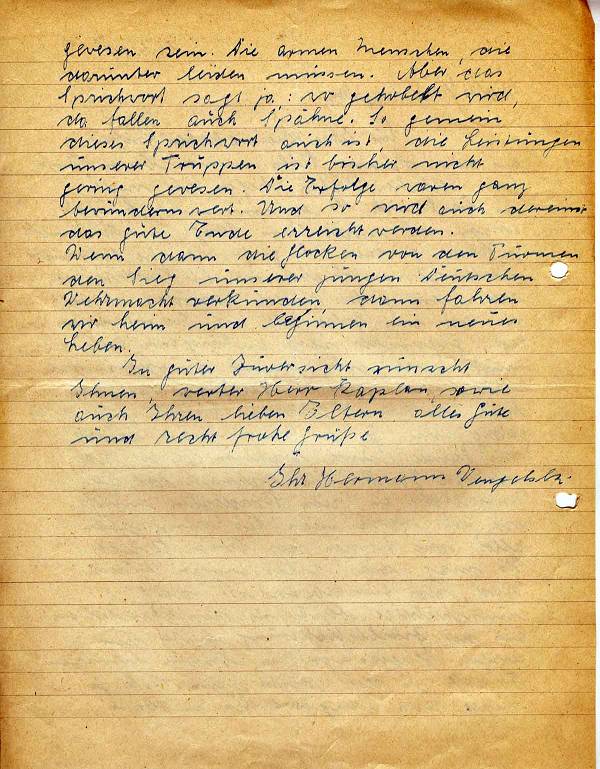 gewesen sein. Die armen Menschen, die
darunter leiden müssen. Aber das
Sprichwort sagt ja,: wo gehobelt wird,
da fallen auch Spähne. So gemein
dieses Sprichwort auch ist, die Leistungen
unserer Truppen ist bisher nicht
gering gewesen. Die Erfolge waren ganz
bewundernswert. Und so wird auch dereinst
das gute Ende erreicht werden.
Wenn dann die Glocken von den Türmen
den Sieg unserer jungen Deutschen
Wehrmacht verkünden, dann fahren
wir heim und beginnen ein neues
Leben.
In guter Zuversicht wünscht
Ihnen, werter Herr Kaplan, sowie
auch Ihren lieben Eltern alles Gute
und recht frohe Grüße
Ihr Hermann